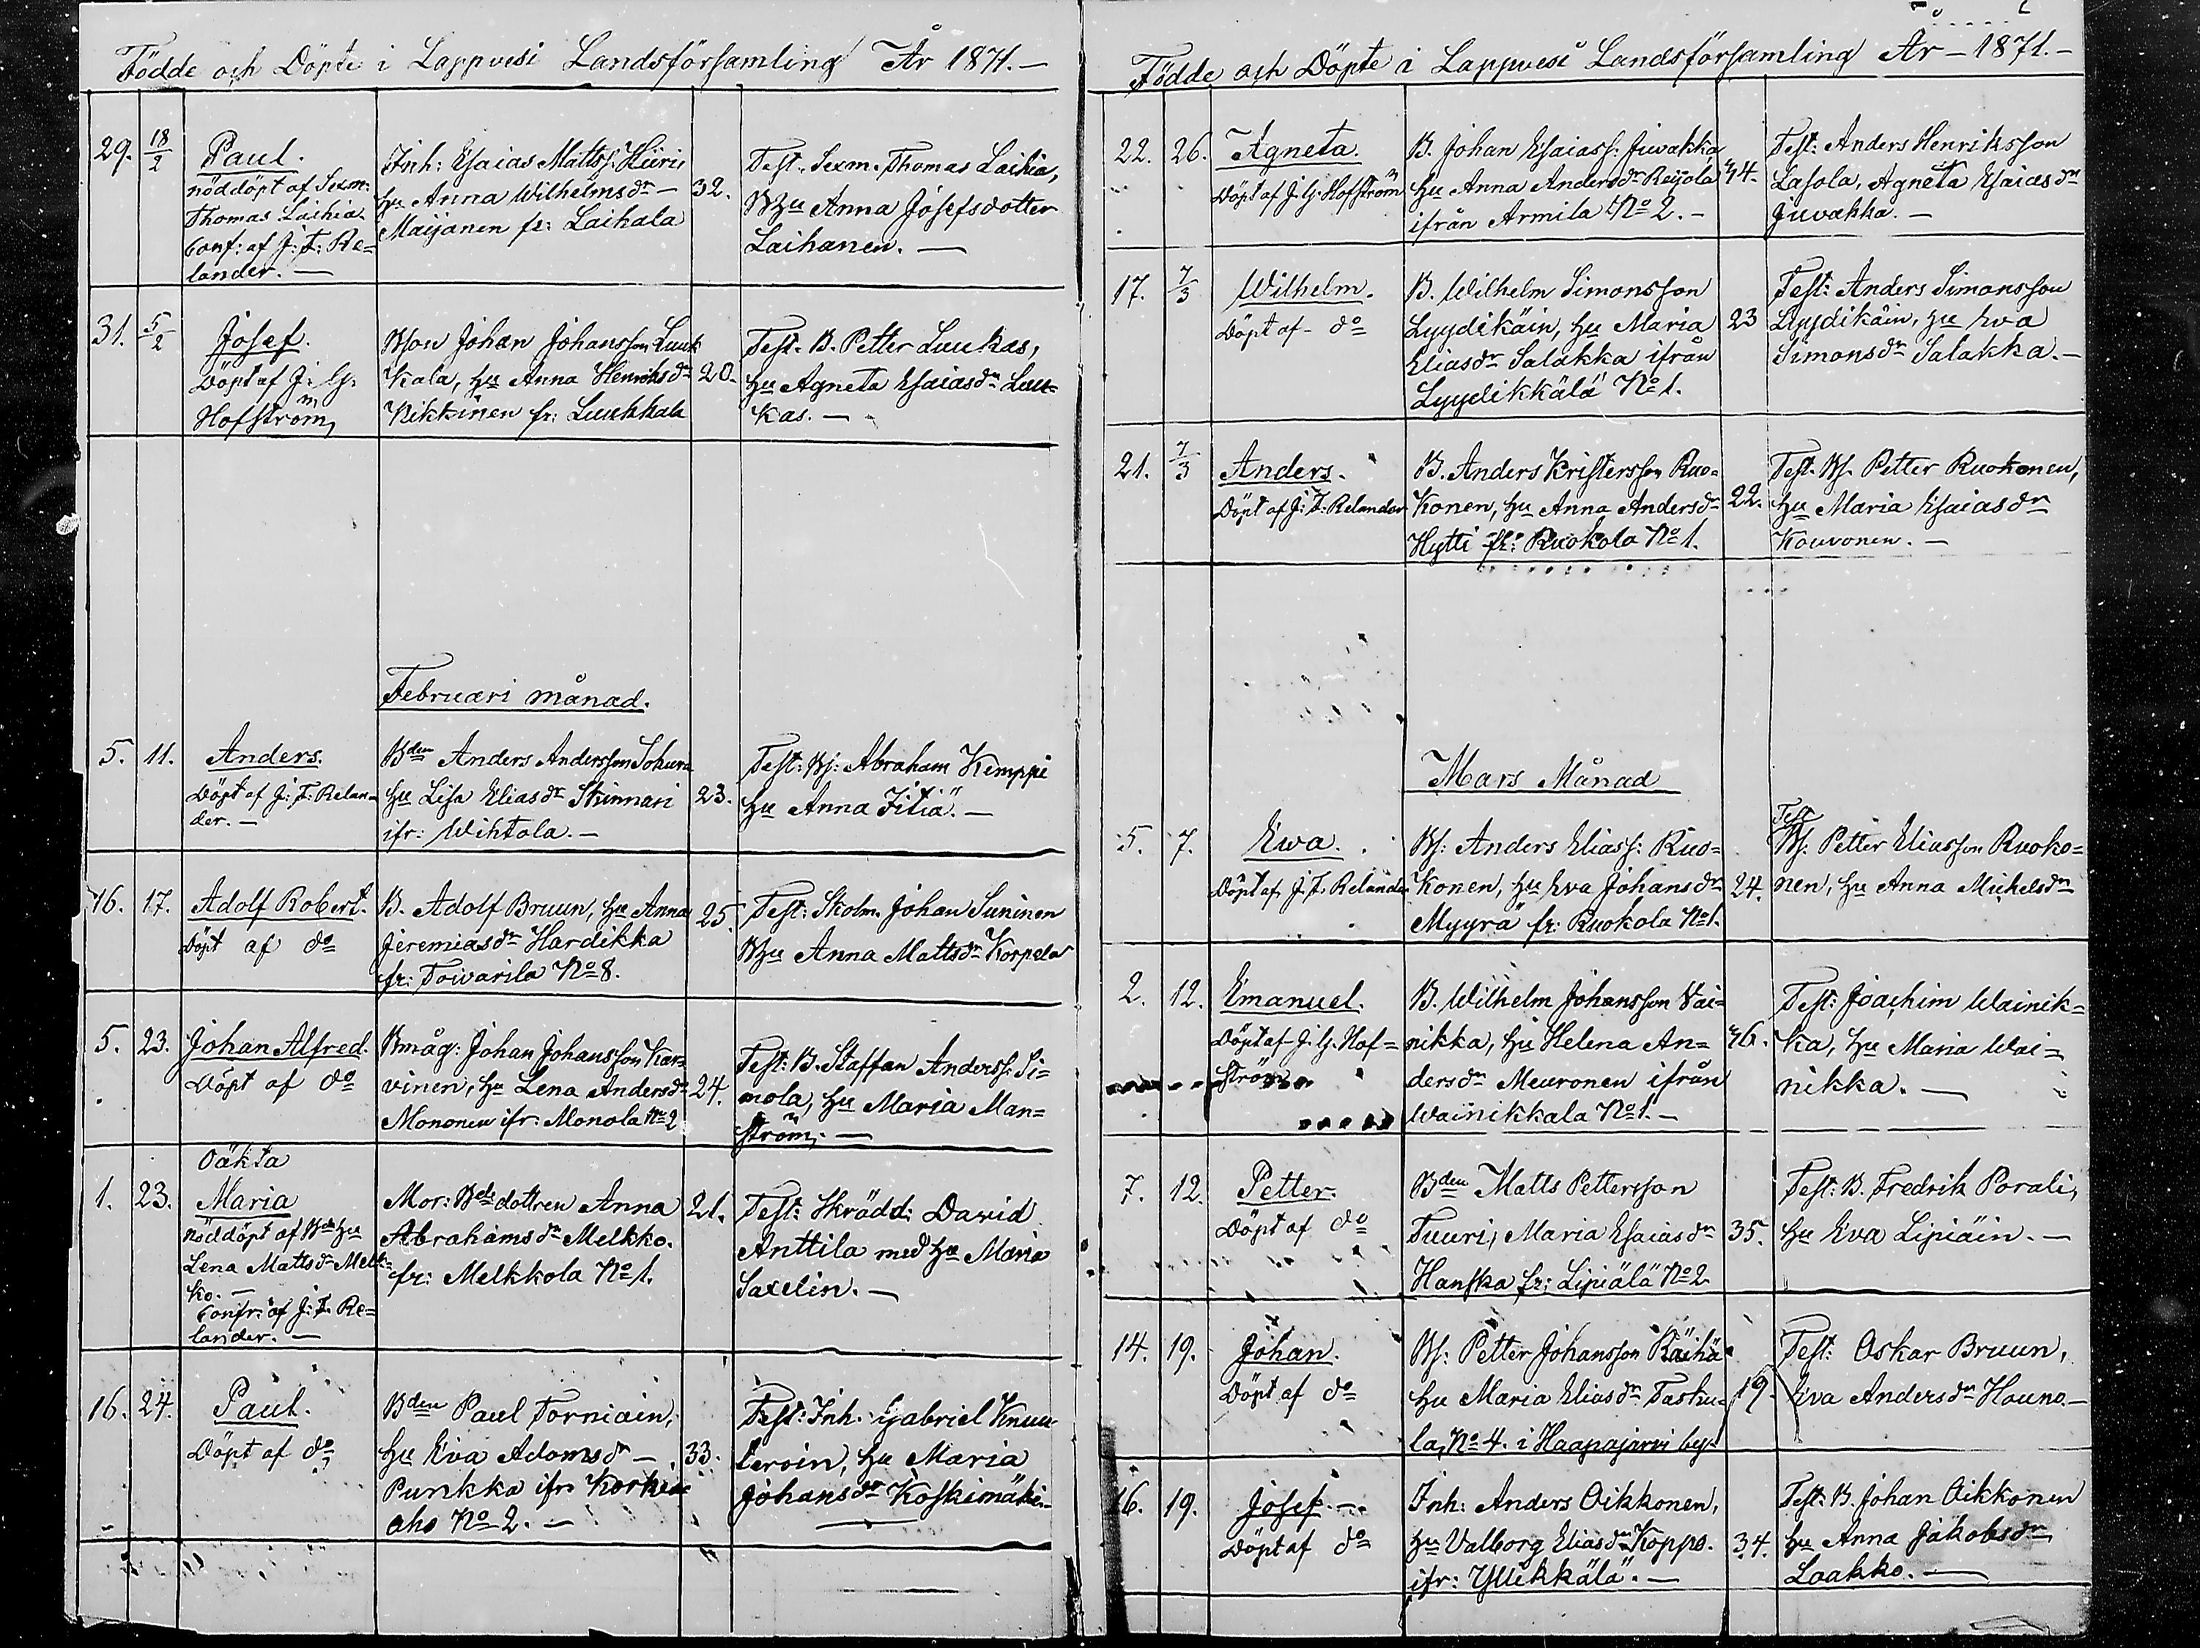 Födde och Döpte i Lappvesi Landsförsamling År 1871.—
29. 18/2 Paul.
nöddöpt af Sexm:
Thomas Laihia.
Conf: af J: F: Re=
lander. —
Inh: Esaias Mattss: Hiiri,
hu Anna Wilhelmsdr —
Maijanen fr: Laihala
32.
Test. Sexm. Thomas Laihia,
Bhu Anna Josefsdotter
Laihanen. —
31. 5/2 Josef.
Döpt af J: G:
Hofström,
Bson Johan Johansson Luuk
kala, hu Anna Henriksdr
Kikkinen fr: Luukkala
20.
Test. B. Petter Luukas,
hu Agneta Esaiasdr Luu=
kas. —
Februari månad.
5. 11. Anders.
Döpt af J: F: Relan=
der. —
Bden Anders Andersson Sohura
hu Lisa Eliasdr Skinnari
ifr: Wihtola. —
23.
Test: Bs: Abraham Kemppi
hu Anna Iitiä. —
16. 17. Adolf Robert.
Döpt af do
B. Adolf Bruun, hu Anna
Jeremiasdr Hardikka
fr: Towarila No 8.
25.
Test: Skolm. Johan Suninen
Bhu Anna Mattsdr Korpela
5. 23. Johan Alfred.
Döpt af do
Bmåg: Johan Johansson Kar=
vinen, hu Lena Andersdr
Mononen ifr: Monola No 2
24.
Test: B. Staffan Anderss: Si=
mola, hu Maria Man=
ström. —
Oäkta
1. 23. Maria
nöddöpt af Bde hu
Lena Mattsdr Melk=
ko. —
Confr: af J: F. Re=
lander. —
Mor: Bde dottren Anna
Abrahamsdr Melkko.
fr: Melkkola No 1.
21.
Test: Skrädd: David
Anttila med hu Maria
Saxelin. —
16. 24. Paul.
Döpt af do
Bden Paul Torniain,
hu Eva Adamsdr —
Punkka ifr. Korkea
aho No 2. —
33.
Test: Inh. Gabriel Knuu
teroin, hu Maria
Johansdr Koskimäki. —
Födde och Döpte i Lappvesi Landsförsamling År — 1871. —
22. 26. Agneta.
Döpt af J. G. Hofström
B. Johan Esaiass: Juvakka
hu Anna Andersdr Reijola
ifrån Armila No 2. —
44.
Test: Anders Henriksson
Lasola, Agneta Esaiasdr
Juvakka. —
17. 7/3 Wilhelm.
Döpt af do
B. Wilhelm Simonsson
Lyydikäin, hu Maria
Eliasdr Salakka ifrån
Lyydikkälä No 1.
23
Test: Anders Simonsson
Lyydikäin, hu Eva
Simonsdr Salakka. —
21. 7/3 Anders.
Döpt af J: F: Relander
B. Anders Kristersson Ruo=
konen, hu Anna Andersdr
Hytti fr: Ruokola No 1.
22.
Test. Bs. Petter Ruokonen,
hu Maria Esaiasdr
Kouvonen. —
Mars Månad
5. 7. Ewa.
Döpt af J. F. Relander
Bs: Anders Eliass: Ruo=
konen, hu Eva Johansdr
Myyrä fr: Ruokola No 1.
24.
Test
Bs: Petter Eliasson Ruoko=
nen, hu Anna Michelsdr
2. 12. Emanuel.
Döpt af J. G. Hof=
ström
B. Wilhelm Johansson Vai=
nikka, hu Helena An=
dersdr Meuronen ifrån
Wainikkala No 1. —
46.
Test: Joachim Wainik=
ka, hu Maria Wai=
nikka. —
7. 12. Petter.
Döpt af do
Bden Matts Pettersson
Tuuri, Maria Esaiasdr
Hanska fr: Lipiälä No 2
35.
Test: B. Fredrik Porali,
hu Eva Lipiäin. —
14. 19. Johan.
Döpt af do
Bs: Petter Johansson Räihä
hu Maria Eliasdr Tasku=
la, No 4. i Haapajärvi by.
19.
Test: Oskar Bruun,
Eva Andersdr Houno. —
16. 19. Josef. —
Döpt af do
Inh: Anders Oikkonen,
hu Valborg Eliasdr Koppo.
ifr: Yllikkälä. —
34.
Test: B. Johan Oikkonen
hu Anna Jakobsdr
Laakko. —